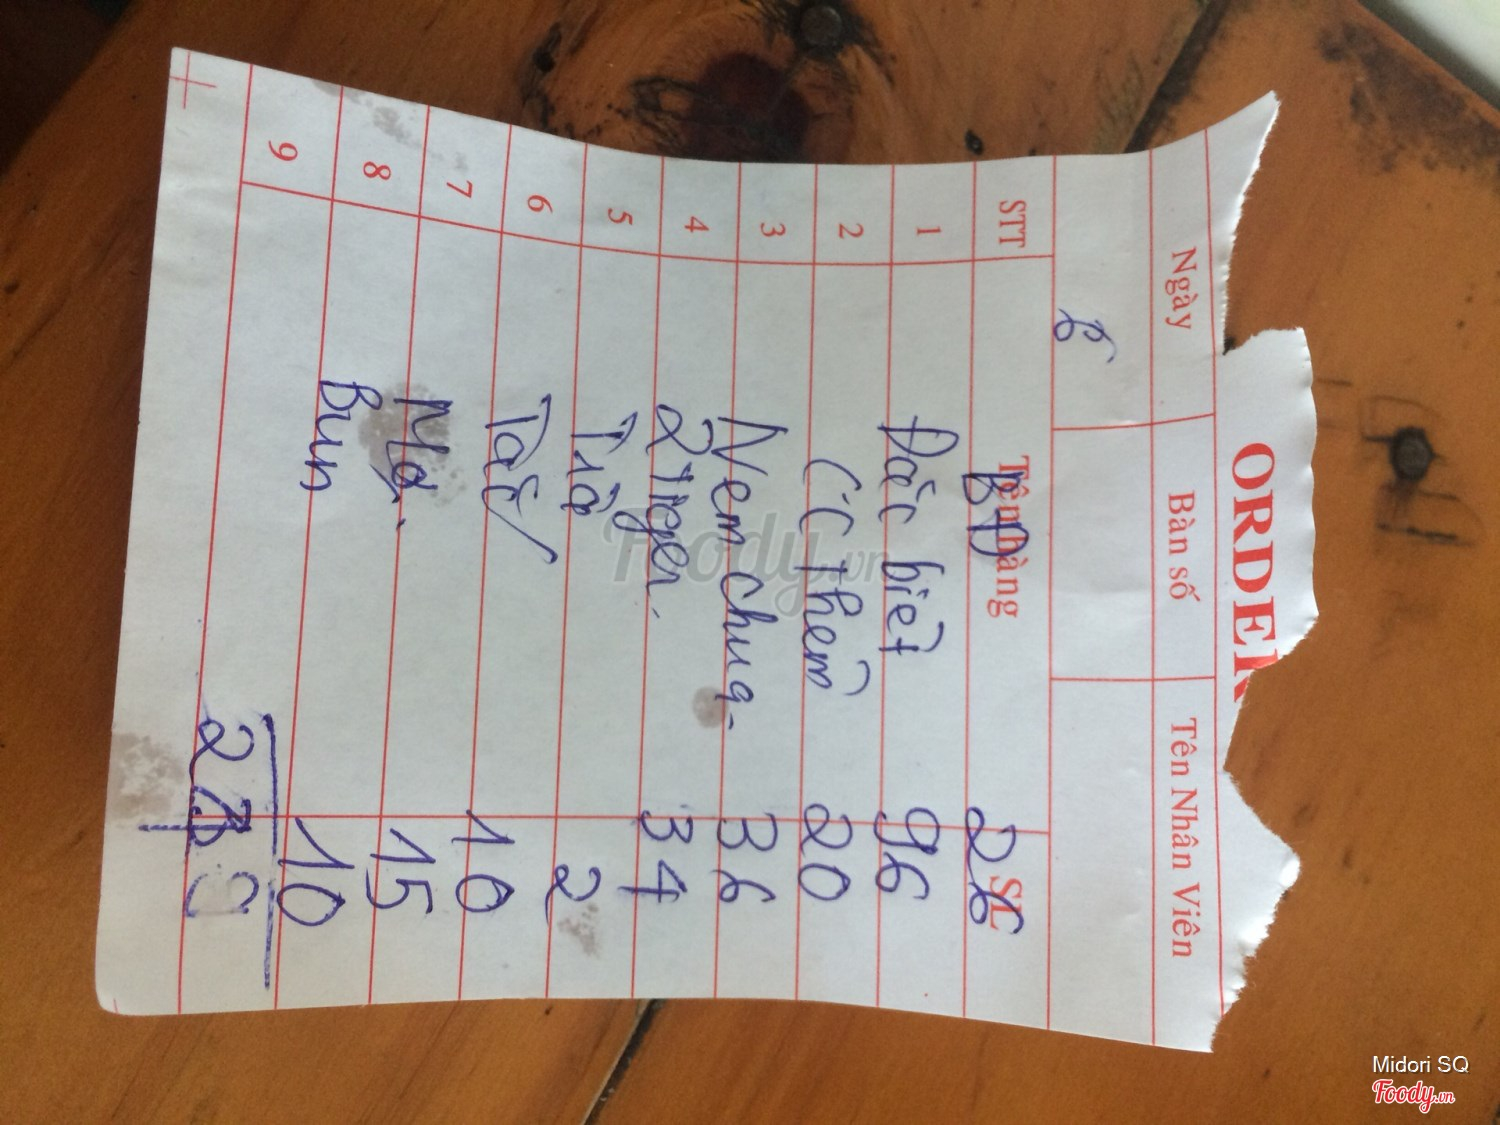 ORDER
Ngày Bàn số Tên Nhân Viên
6
STT Tên hàng SL
BD 26
1 Đặc biệt 96
2 CC thêm 20
3 Nem chua 36
4 2 tiger 34
5 Trà 2
6 Tắc 10
7 Mơ 15
8 Bún 10
9
Foody.vn
Midori SQ
Foody.vn